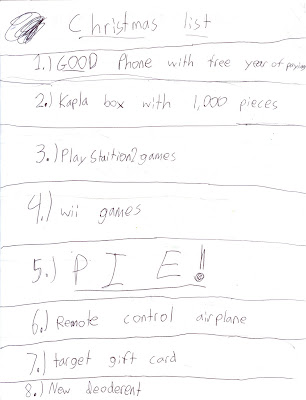 Christmas list
1.) GOOD Phone with free year of paying
2.) Kapla box with 1,000 pieces
3.) PlayStaition2 games
4.) wii games
5.) PIE!
6.) Remote control airplane
7.) target gift card
8.) New deoderent